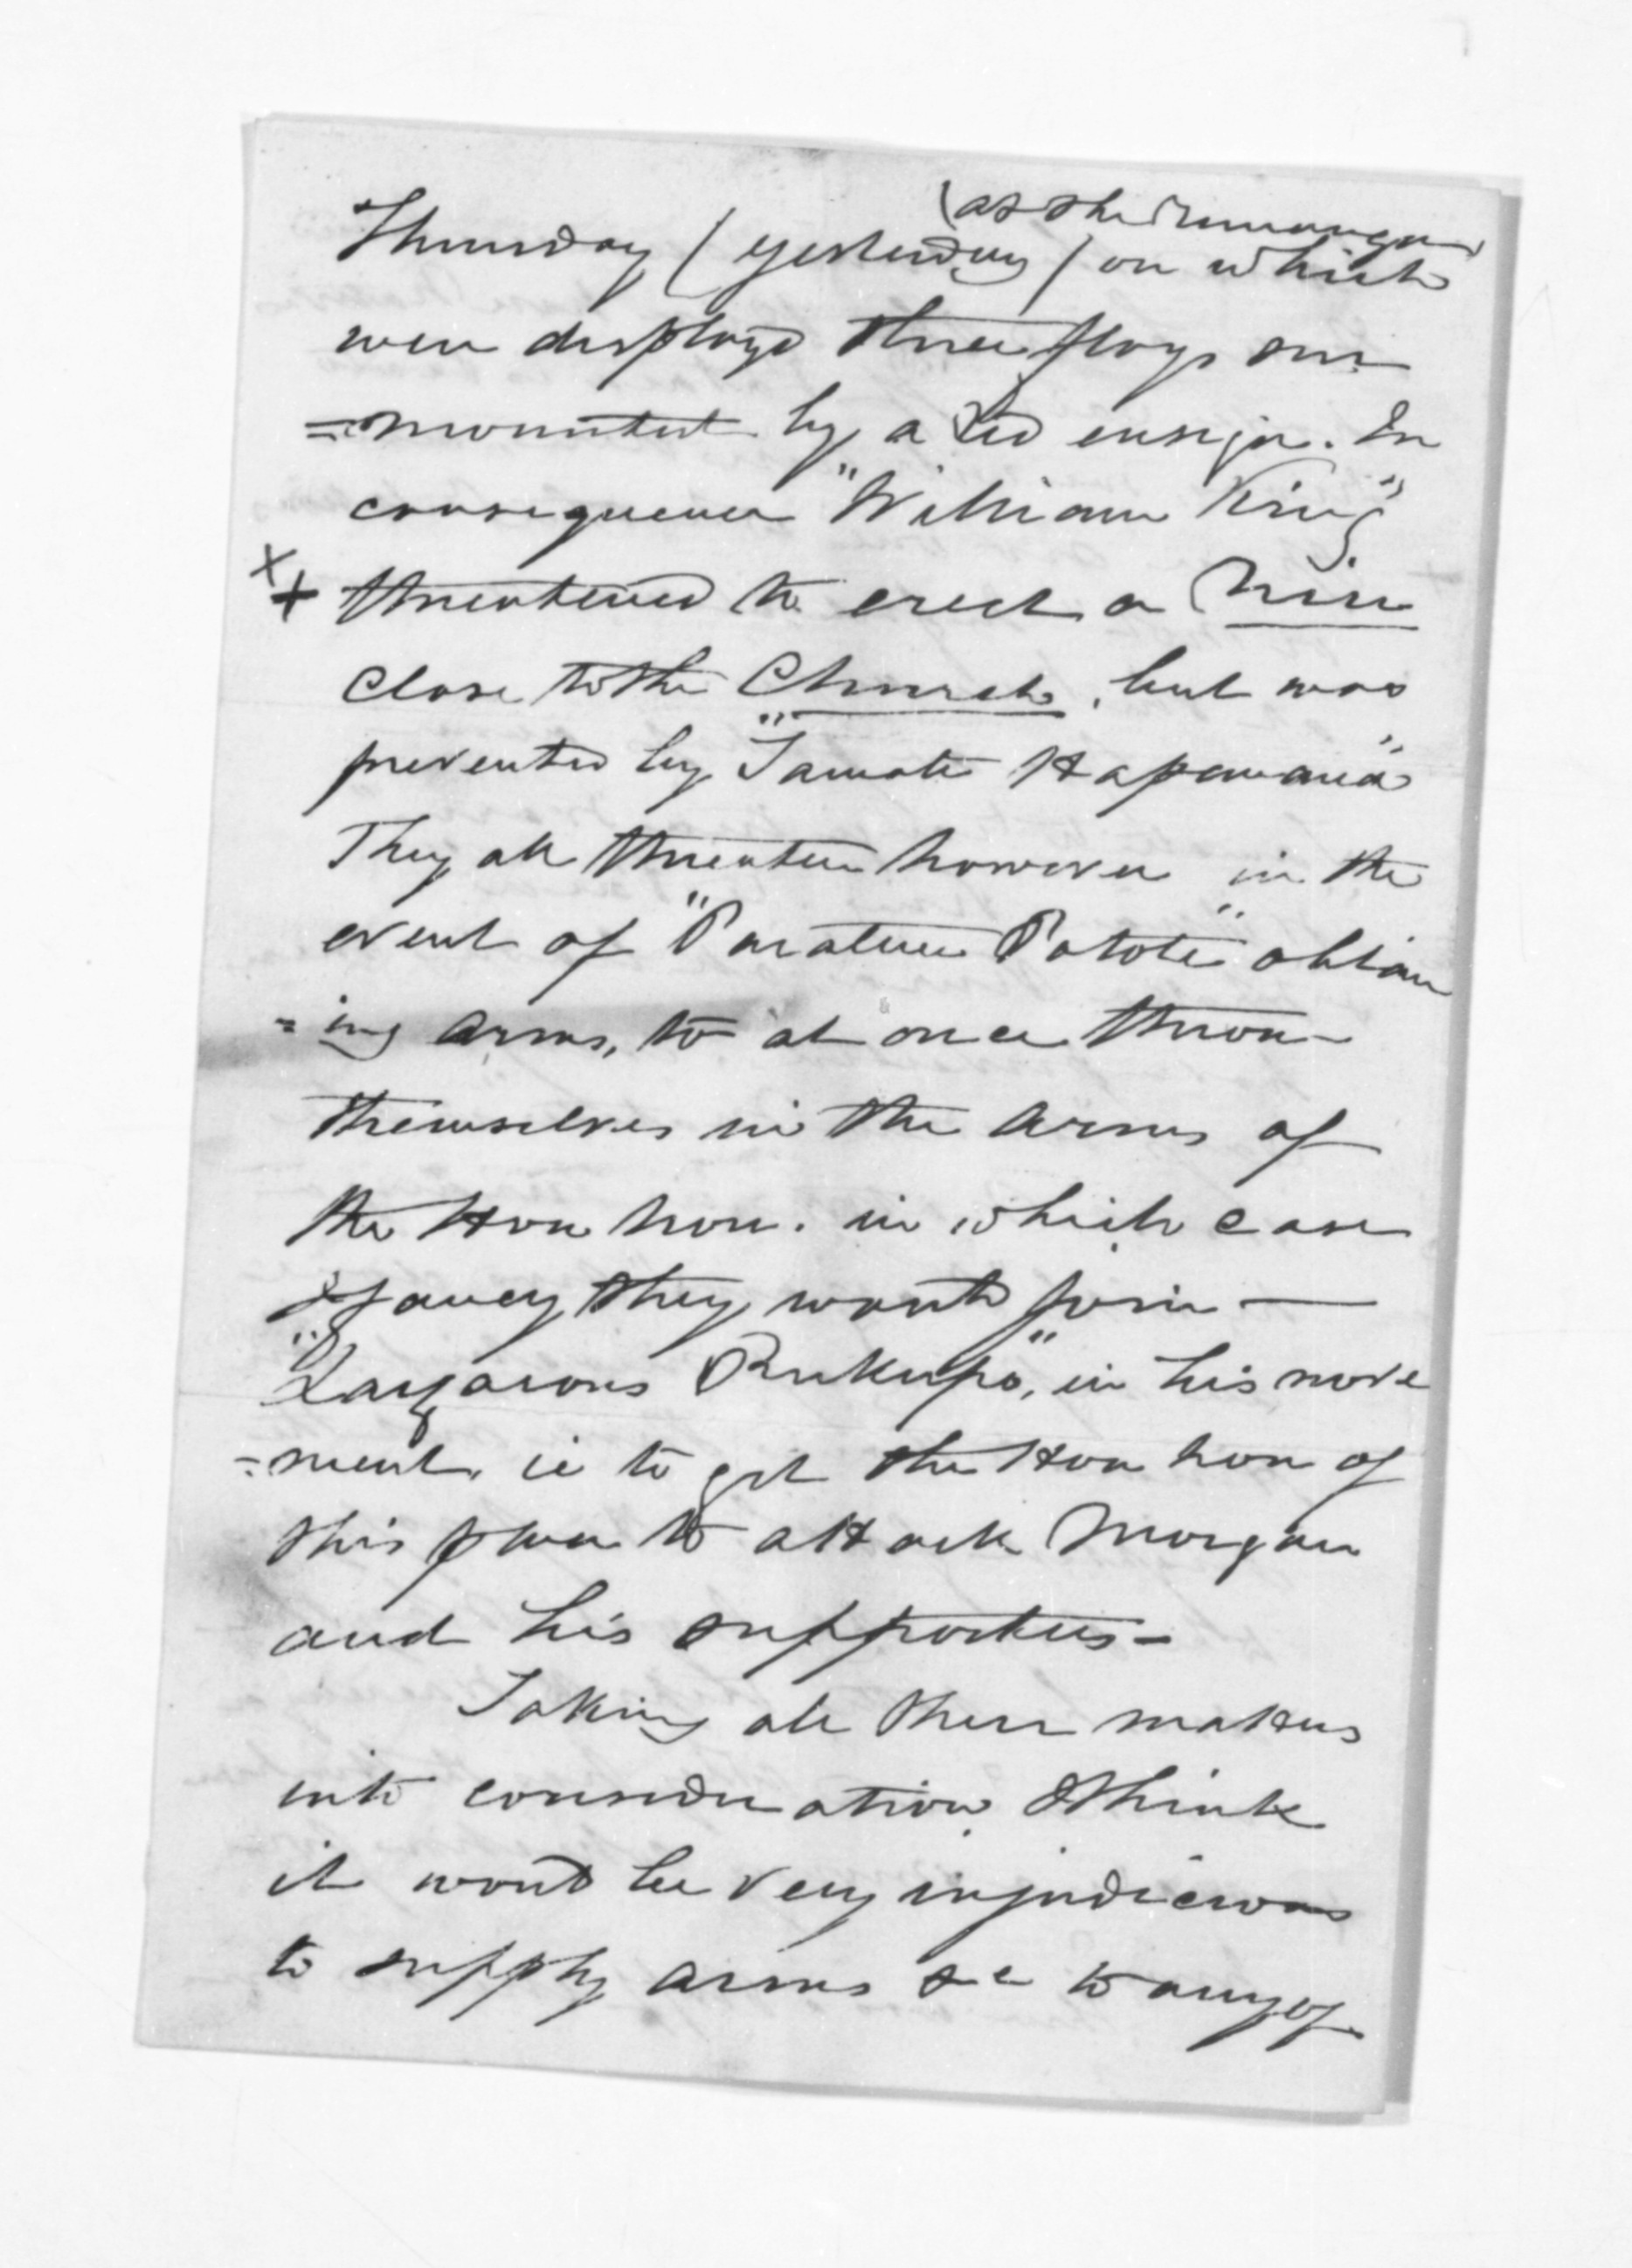 (at the Runuanga)
Thursday (yesterday) on which
were displayd three flags sur
=mounted by a red ensign. In
consequence "William King"
threatened to erect a Niu
close to the Church, but was
prevented by "Tamati Hapimana"
They all threaten however in the
event of "Paratene Potote" obtain
=ing arms, to at once throw
themselves in the arms of
the Hau hau. in which case
I fancy they would join —
"Lazarous Rukupo", in his move
=ment. ie to get the Hau hau of
this place to attack Morgan
and his supporters –
Taking all these matters
into consideration I think
it would be very injudicious
to supply arms &c to any of